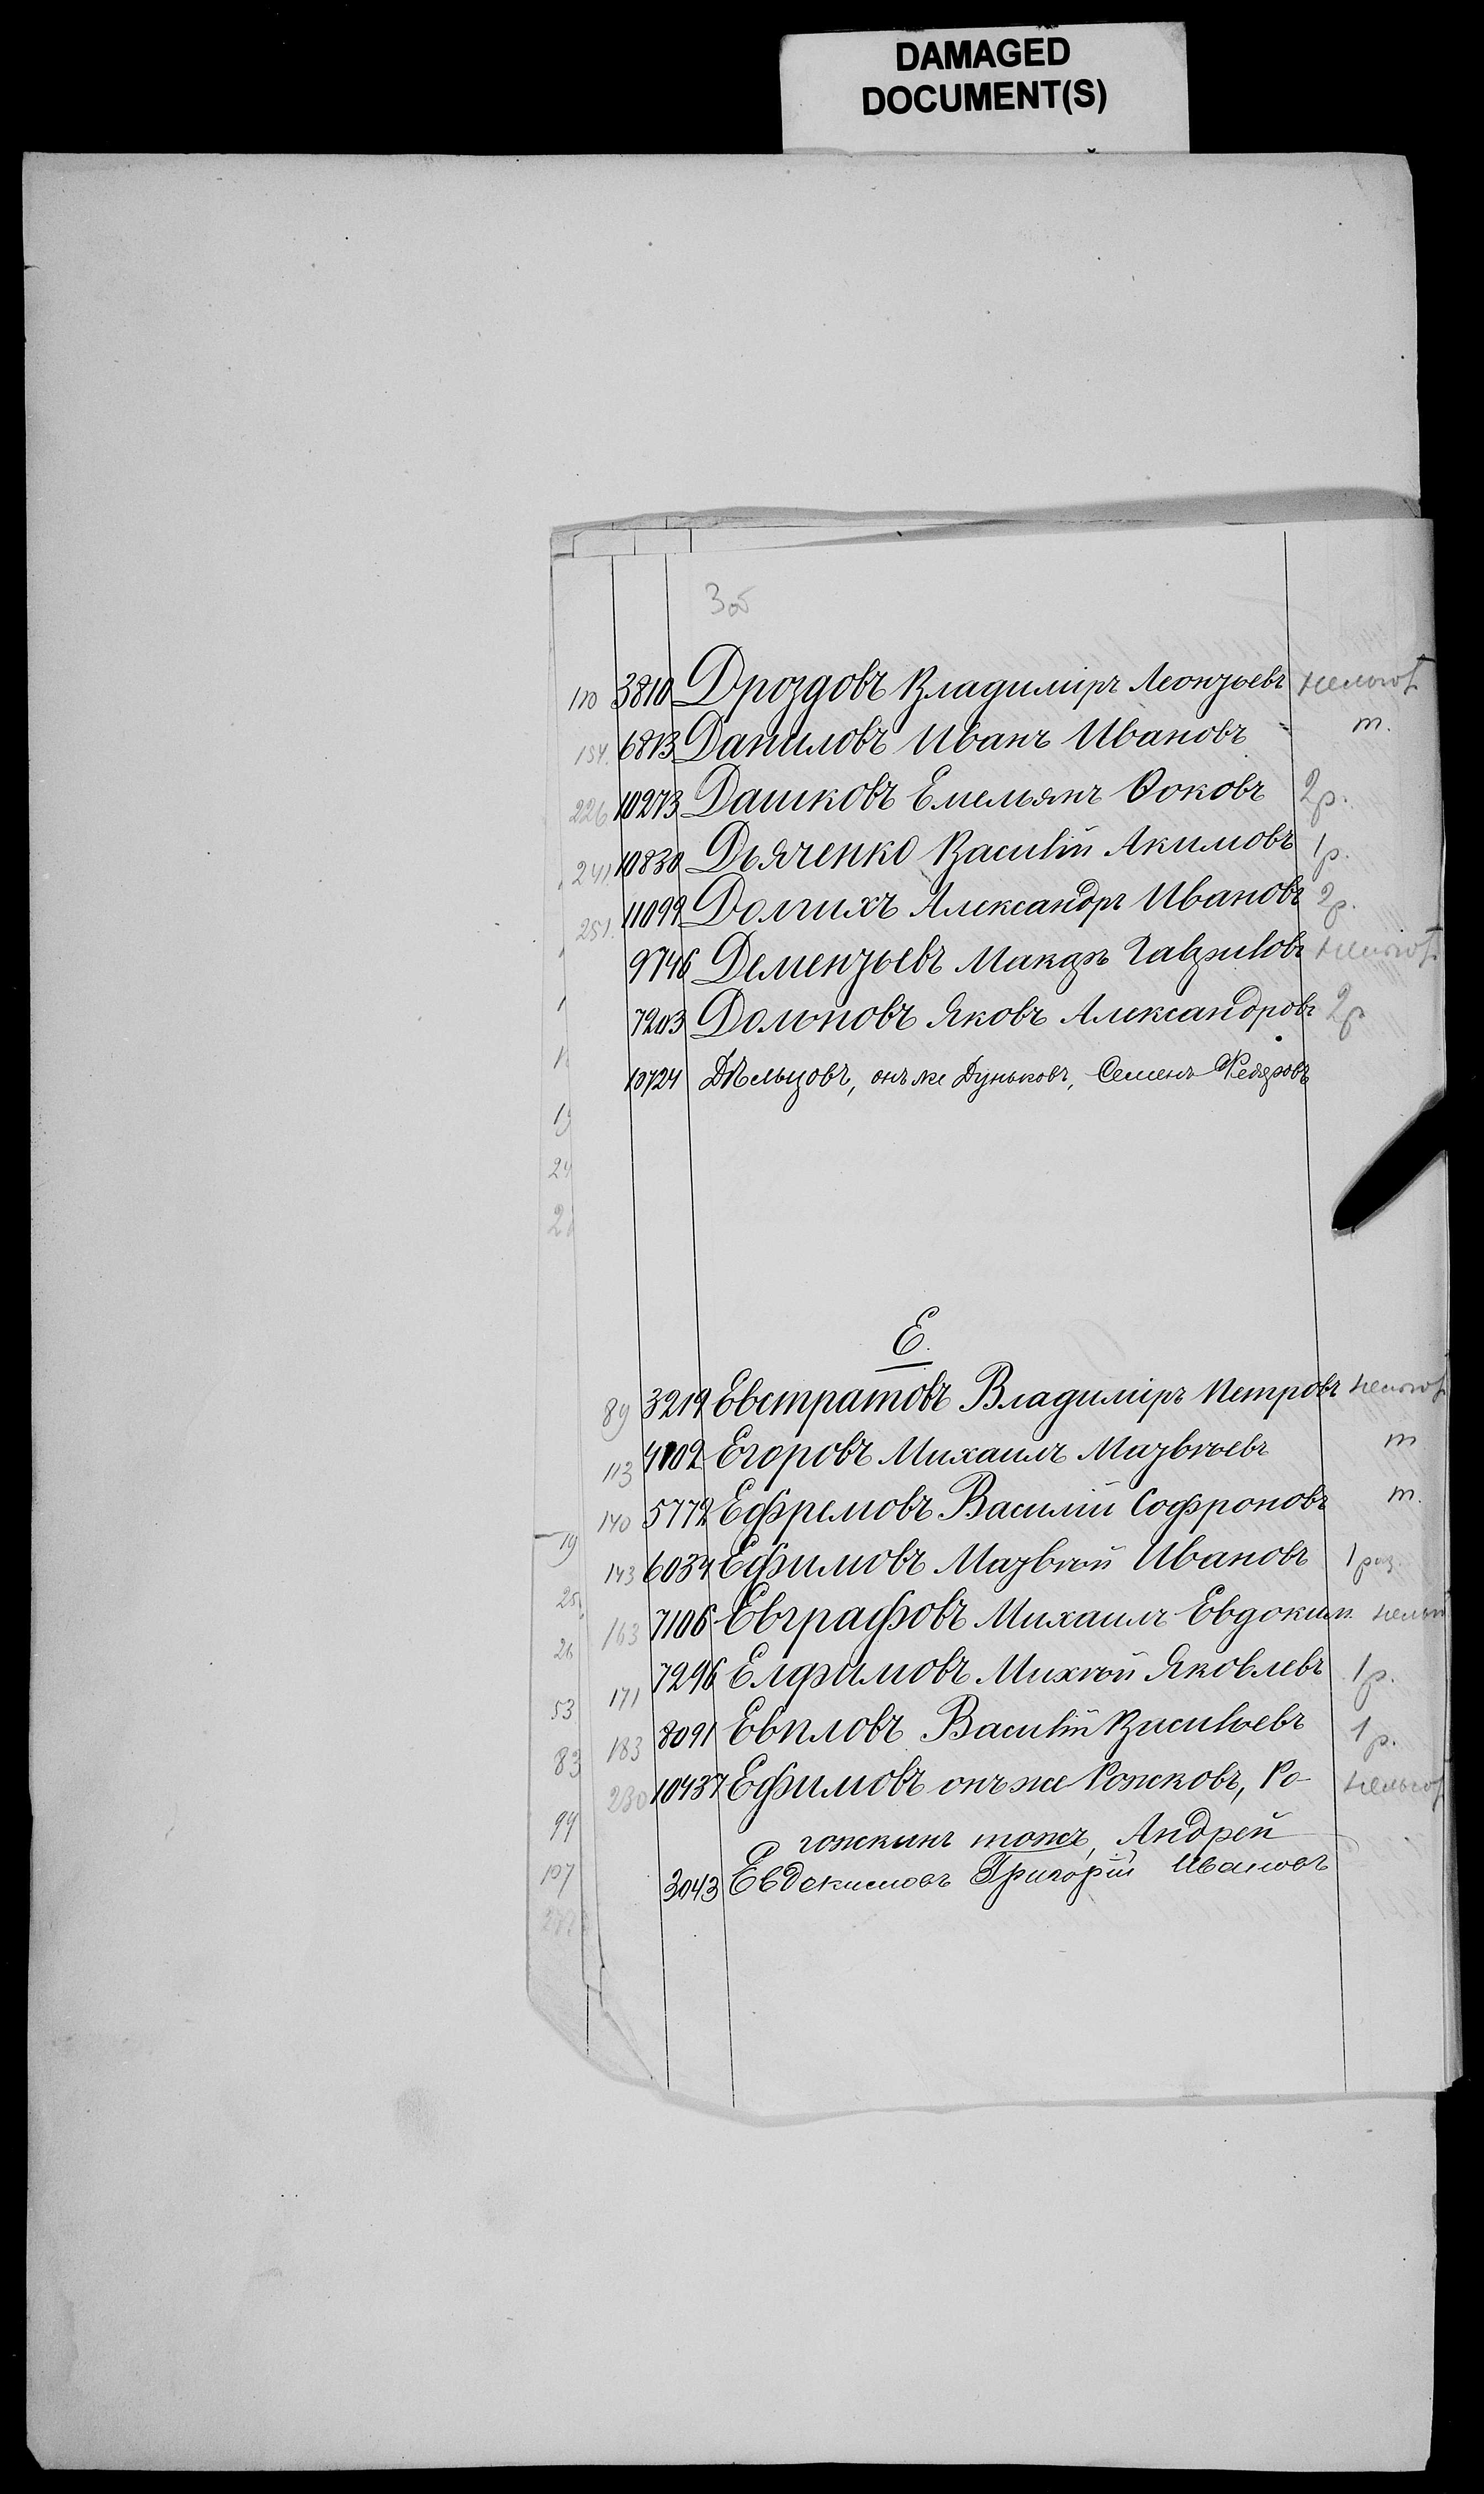 DAMAGED
DOCUMENT(S)
3об
110 3810 Дроздовъ Владиміръ Леонтьевъ нельгот
154. 6813 Даниловъ Иванъ Ивановъ т.
226 10273 Дашковъ Емельянъ Ѳоковъ 2р.
241. 10830 Дьяченко Василій Акимовъ 1р.
251. 11099 Долгихъ Александръ Ивановъ 2р.
9746 Дементьевъ Макаръ Гавриловъ нельгот
7203 Дольновъ Яковъ Александровъ 2р
10724 Дѣльцовъ, онъ же Дуньковъ, Семенъ Федоровъ
Е.
89 3219 Евстратовъ Владиміръ Петровъ нельгот
113 4102 Егоровъ Михаилъ Матвѣевъ т
140 5772 Ефремовъ Василій Софроновъ т.
19
143 6034 Ефимовъ Матвѣй Ивановъ 1 раз.
25
163 7106 Евграфовъ Михаилъ Евдоким. нельг
26
171 7296 Елфимовъ Михѣй Яковлевъ 1р.
53
183 8091 Евпловъ Василій Васильевъ 1р.
83
230 10437 Ефимовъ онъ же Рожковъ, Ро- нельгот
99
гожкинъ тожъ, Андрей
107
3043 Евдокимовъ Григорій Ивановъ